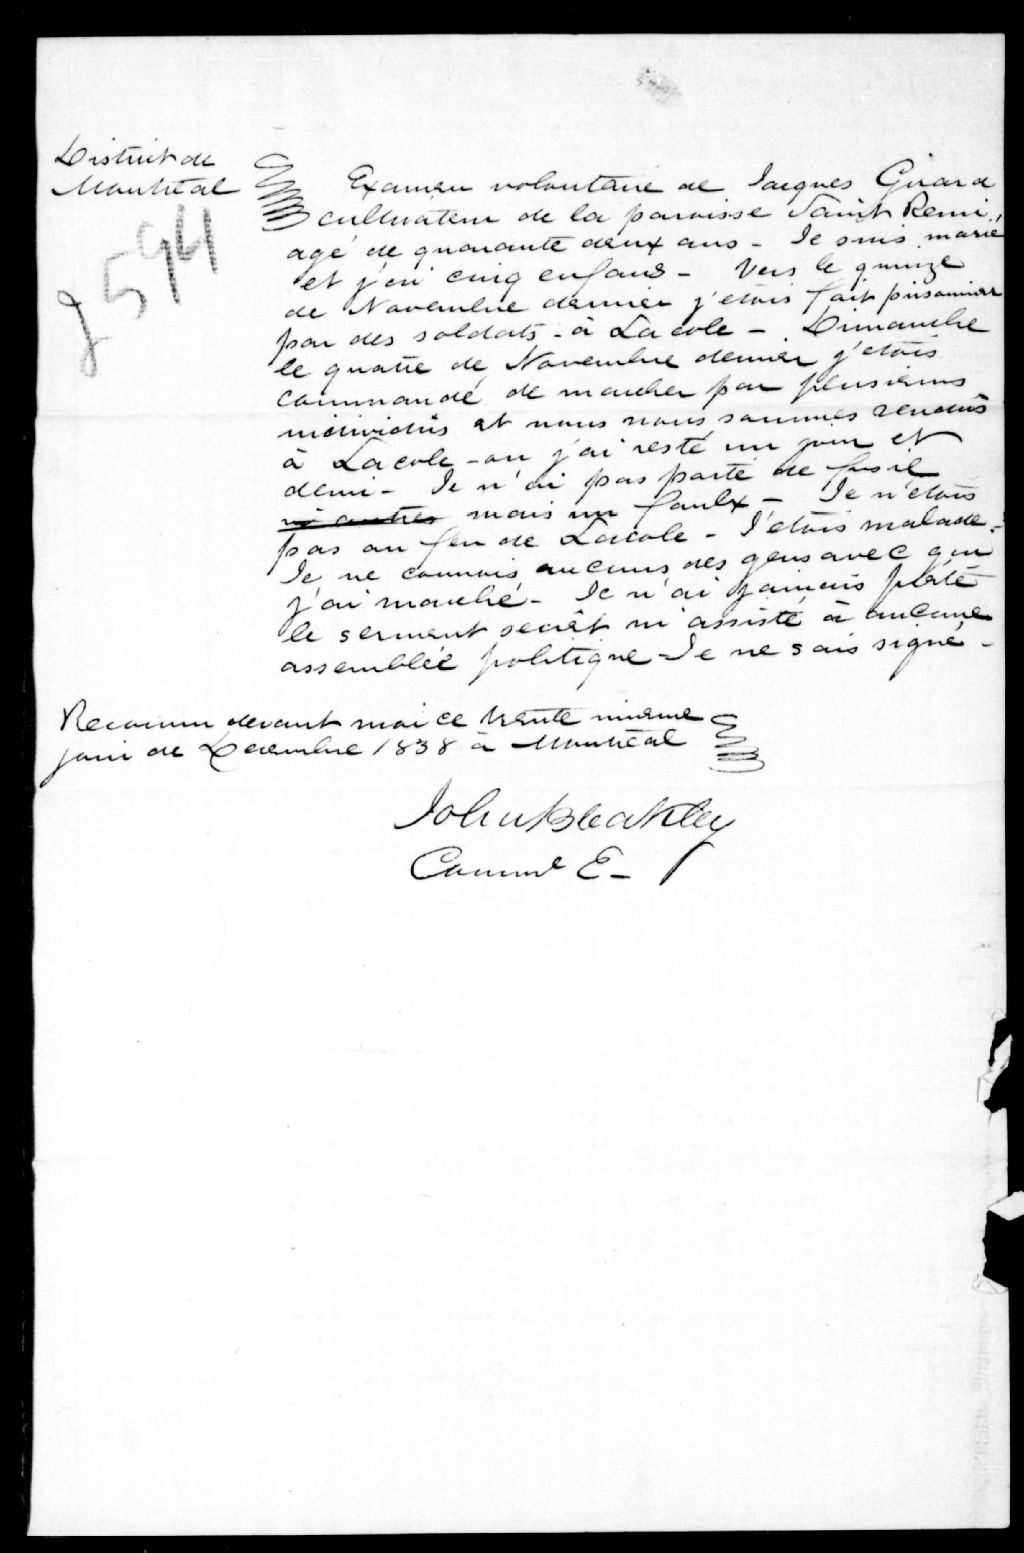 District de
Montréal
g 594
Examen volontaire de Jacques Girard
cultivateur de la paroisse Saint Remi,
agé de quarante deux ans - Je suis marié
et j'ai cinq enfans - Vers le quinze
de Novembre dernier j'etois fait prisonnier
par des soldats - à Lacole - Dimanche
le quatre de Novembre dernier j'etois
commandé de marcher par plusieurs
individus et nous nous sommes rendus
à Lacole - ou j'ai resté un jour et
demi - Je n'ai pas porté de fusil
ni autres mais un faulx - Je n'étois
pas au feu de Lacole - J'etois malade -
Je ne connois aucuns des gens avec qui
j'ai marché - Je n'ai jamais prété
le serment secrêt ni assisté à aucune
assemblée politique - Je ne sais signé -
Reconnu devant moi ce trente unieme
jour de Decembre 1838 à Montréal
John Bleakley
Comme E -